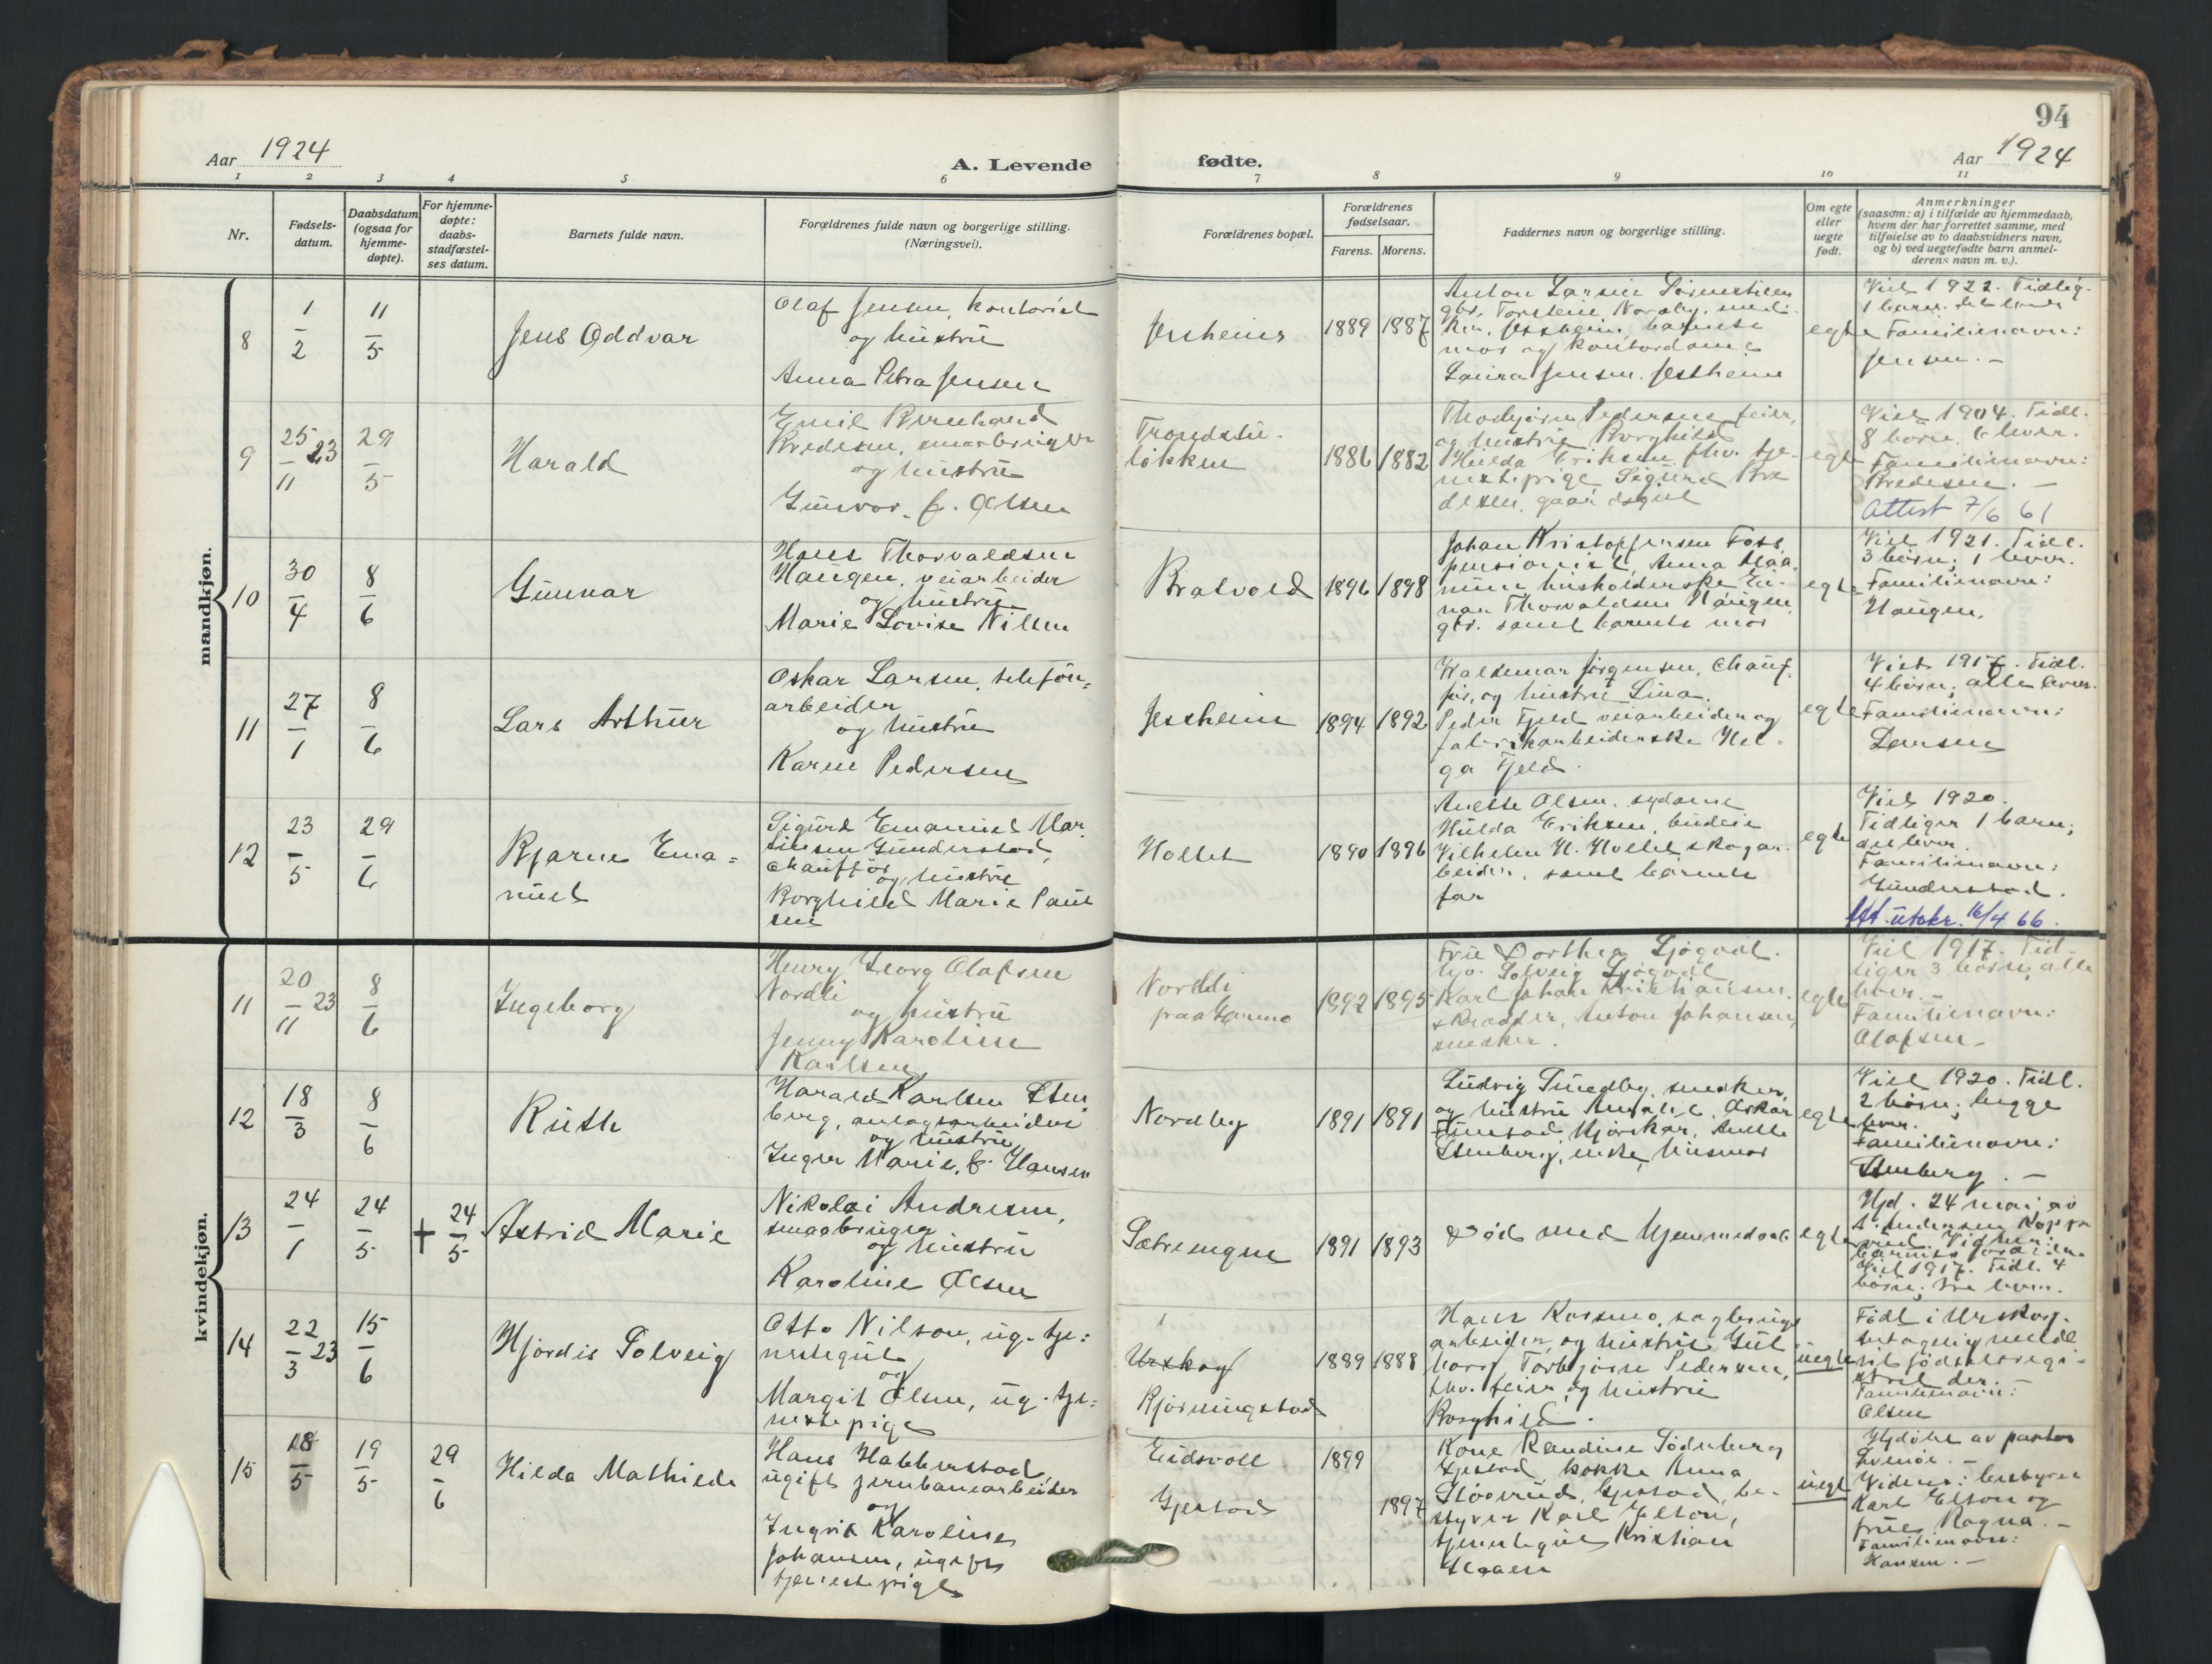 94
Aar 1924
A. Levende
fødte.
Aar 1924
1 2 3 4 5 6 7 8 9 10 11
Nr.
Fødsels-
datum.
Daabsdatum
(ogsaa for
hjemme-
døpte).
For hjemme-
døpte:
daabs-
stadfæstel-
ses datum.
Barnets fulde navn.
Forældrenes fulde navn og borgerlige stilling.
(Næringsvei).
Forældrenes bopæl.
Forældrenes
fødselsaar.
Farens. Morens.
Faddernes navn og borgerlige stilling.
Om egte
eller
uegte
født.
Anmerkninger
(saasom: a) i tilfælde av hjemmedaab,
hvem der har forrettet samme, med
tilføielse av to daabsvidners navn,
og b) ved uegtefødte barn anmel-
derens navn m. v.).
mandkjøn.
8
1/2
11/5
Jens Oddvar
Olaf Jensen, kontorist
og hustru
Anna Petra Jensen
Jessheim
1889 1887
Anton Larsen
gbr. Torstein Nordby,
Jessheim, barnets
mor og kontordame
Laura Jensen. Jessheim
egte
Viet 1922. Tidlig.
1 barn. det lever
Familienavn:
Jensen. -
9
25/11 23
29/5
Harald
Emil Bernhard
Bredesen, smaabruger
og hustru
Gunvor f. Olsen
Trondstu-
løkken
1886 1882
Thorbjørn Pedersen feier,
og hustru Borghild
Hilda Eriksen fhv. tje-
nestepige Sigurd Bre
desen, gaardsgut
egte
Viet 1904. Tidl.
8 børn. 6 lever.
Familienavn:
Bredesen. -
Attest 7/6 61
10
30/4
8/6
Gunnar
Hans Thorvaldsen
Haugen, veiarbeider
og hustru
Marie Lovise Nilsen
Bratvold
1896 1898
Johan Kristoffersen Foss
pensionist, Anna
husholderske Ei-
nar Thorvaldsen Haugen,
gbr. samt barnets mor
egte
Viet 1921. Tidl.
3 børn; 1 lever.
Familienavn:
Haugen.
11
27/1
8/6
Lars Arthur
Oskar Larsen, telefon-
arbeider
og hustru
Karen Pedersen
Jessheim
1894 1892
Waldemar Jørgensen, Chauf-
før, og hustru Lina.
Peder Fjeld veiarbeider og
fabrikarbeiderske Hel-
ga Fjeld.
egte
Viet 1917. Tidl.
4 børn; alle lever.
Familienavn:
Larsen
12
23/5
29/6
Bjarne Ema-
nuel
Sigurd Emanuel Mar-
tinsen Gunderstad,
chauffør
og hustru
Borghild Marie Paul
sen
Hollet
1890 1896
Anette Olsen, sydame
Hulda Eriksen, budeie
Vilhelm H. Hollet skogar-
beider, samt barnets
far
egte
Viet 1920.
Tidligere 1 barn;
det lever.
Familienavn:
Gunderstad.
Att. utskr. 16/4 66.
kvindekjøn.
11
20/11 23
8/6
Ingeborg
Henry Georg Olafsen
Nordli
og hustru
Jenny Karoline
Karlsen
Nordli
paa
1892 1895
Frue Dorthea Sjøgodt.
Solveig Sjøgodt
Karl Johan Kristiansen.
skrædder, Anton Johansen,
snekker.
egte
Viet 1917. Tid-
ligere 3 børn, alle
lever. -
Familienavn:
Olafsen -
12
18/3
8/6
Ruth
Harald Karlsen Sten-
berg, anlægsarbeider
og hustru
Inger Marie, f. Hansen
Nordby
1891 1891
Ludvig Smedby, snekker,
og hustru Amalie. Oskar
Anette
Stenberg, enke, husmor
egte
Viet 1920. Tidl.
2 børn; begge
lever.
Familienavn:
Stenberg. -
13
24/1
24/5
+ 24/5
Astrid Marie
Nikolai Andresen,
smaabruger
og hustru
Karoline Olsen
Sætrengen
1891 1893
Død med hjemmedaab
egte
Hjd. 24 mai av
Vidner:
barnets forældre.
Viet 1917. Tidl. 4
børn; tre lever.
14
22/3 23
15/6
Hjørdis Solveig
Otto Nilson, ug. tje-
nestegut
og
Margit Olsen, ug. tje-
nestepige
Urskog
Kjørningstad
1889 1888
Hans Kossmo, sagbrugs
arbeider, og hustru Gul
borg Torbjørn Pedersen,
fhv. feier og hustru
Borghild.
uegte
Født i Urskog.
meldt
til fødselsregi-
stret der. -
Familienavn:
Olsen
15
18/5
19/5
29/6
Hilda Mathilde
Hans Habberstad
ugift jernbanearbeider
og
Ingrid Karoline
Johansen, ugift
tjenestepige
Eidsvoll
Gjestad
1899
1897
Kone Randine Søderberg
Gjestad, kokke Anna
Gjestad, be-
styrer Karl Elton,
tjenestegut Kristian
uegte
Hjdøbt av pastor
Vidner: bestyrer
Karl Elton og
frue Ragna. -
Familienavn:
Hansen. -